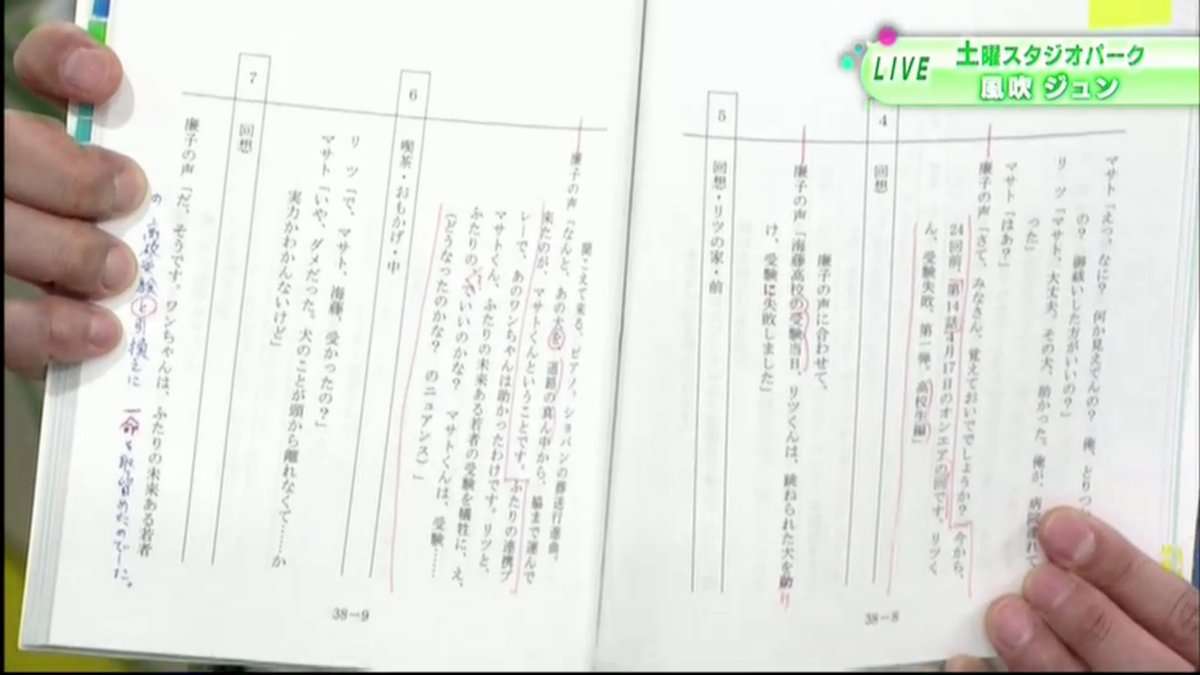 LIVE
土曜スタジオパーク
風吹 ジュン
マサト「えっ、なに? 何か見えてんの? 俺、とりつ
の? 御祓いした方がいいの?」
リツ「マサト、大丈夫。その犬、助かった。俺が、病院
った」
マサト「はあ?」
廉子の声「さて、みなさん、覚えておいででしょうか? 今から、
24回前、第14話4月17日のオンエアの回です。リツく
ん、受験失敗、第一弾、高校生編」
4 回想
廉子の声に合わせて、
廉子の声「海藤高校の受験当日、リツくんは、跳ねられた犬を助
け、受験に失敗しました」
5 回想・リツの家・前
38-8
聞こえて来る、ピアノ、ショパンの葬送行進曲。
廉子の声「なんと、あの犬を、道路の真ん中から、脇まで運んで
来たのが、マサトくんということです。ふたりの連携プ
レーで、あのワンちゃんは助かったわけです。リツと、
マサトくん、ふたりの未来ある若者の受験を犠牲に、え、
ふたりの、で、いいのかな? マサトくんは、受験……
(どうなったのかな? のニュアンス)」
6 喫茶・おもかげ・中
リツ「で、マサト、海藤、受かったの?」
マサト「いや、ダメだった。犬のことが頭から離れなくて……か
実力かわかんないけど」
7 回想
廉子の声「だ、そうです。ワンちゃんは、ふたりの未来ある若者
の高校受験と引換えに 一命を取留めたのでした。
38-9